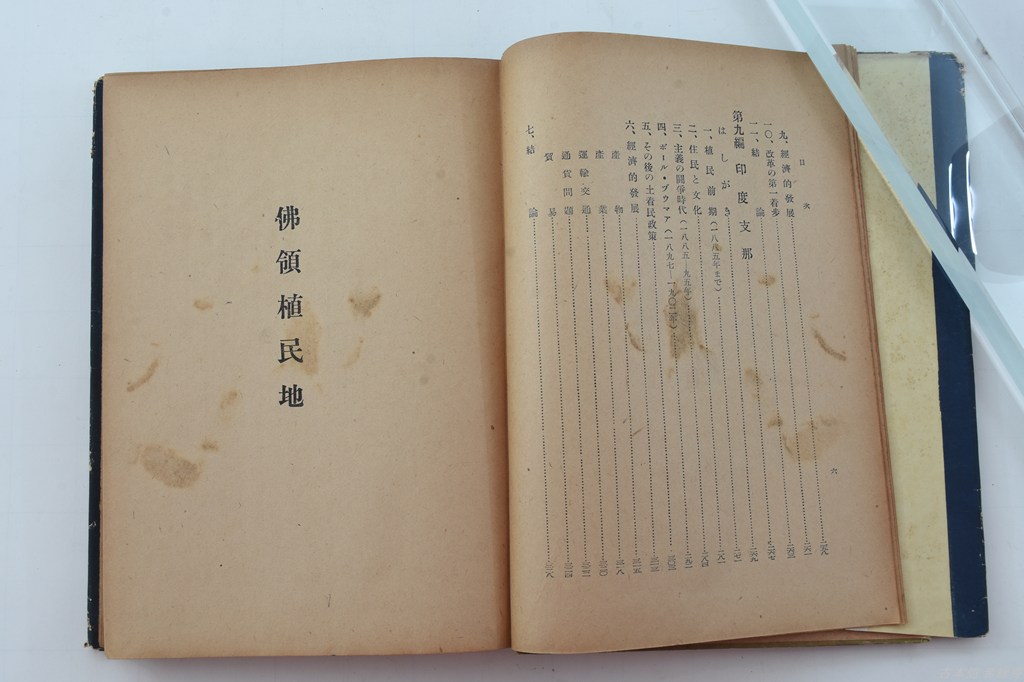 目次
九、經濟的發展
一〇、改革の第一着步
一一、結論
第九編 印度支那
はしがき
一、植民前期(一八八五年まで)
二、住民と文化
三、主義の鬪爭時代(一八八五—九五年)
四、ポール・ヅウマア(一八九七—一九〇二年)
五、その後の土着民政策
六、經濟的發展
產物
產業
運輸・交通
通貨問題
貿易
七、結論
六
佛領植民地